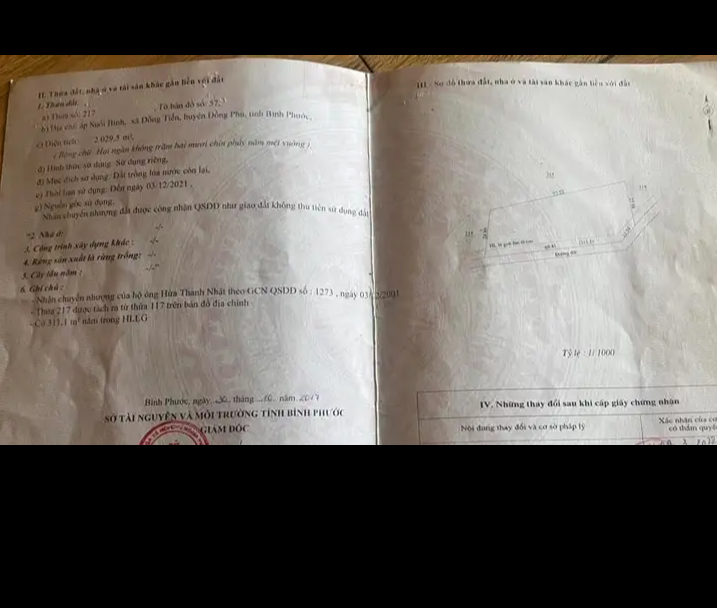 II. Thửa đất, nhà ở và tài sản khác gắn liền với đất
1. Thửa đất:
a) Thửa số: 217 , Tờ bản đồ số: 57,
b) Địa chỉ: ấp Suối Binh, xã Đồng Tiến, huyện Đồng Phú, tỉnh Bình Phước,
c) Diện tích: 2.029,5 m²,
( Bằng chữ: Hai ngàn không trăm hai mươi chín phẩy năm mét vuông ),
d) Hình thức sử dụng: Sử dụng riêng,
đ) Mục đích sử dụng: Đất trồng lúa nước còn lại,
e) Thời hạn sử dụng: Đến ngày 03/12/2021 ,
g) Nguồn gốc sử dụng:
Nhận chuyển nhượng đất được công nhận QSDĐ như giao đất không thu tiền sử dụng đất
2. Nhà ở: -/-
3. Công trình xây dựng khác : -/-
4. Rừng sản xuất là rừng trồng: -/-
5. Cây lâu năm : -/-
6. Ghi chú :
- Nhận chuyển nhượng của hộ ông Hứa Thanh Nhật theo GCN QSDĐ số : 1273 , ngày 03/12/2001
- Thửa 217 được tách ra từ thửa 117 trên bản đồ địa chính
- Có 311,1 m² nằm trong HLLG
Bình Phước, ngày 30 tháng 10 năm
SỞ TÀI NGUYÊN VÀ MÔI TRƯỜNG TỈNH BÌNH PHƯỚC
GIÁM ĐỐC
III - Sơ đồ thửa đất, nhà ở và tài sản khác gắn liền với đất
Đường đất
Tỷ lệ : 1/ 1000
IV. Những thay đổi sau khi cấp giấy chứng nhận
Nội dung thay đổi và cơ sở pháp lý
Xác nhận của cơ
có thẩm quyề